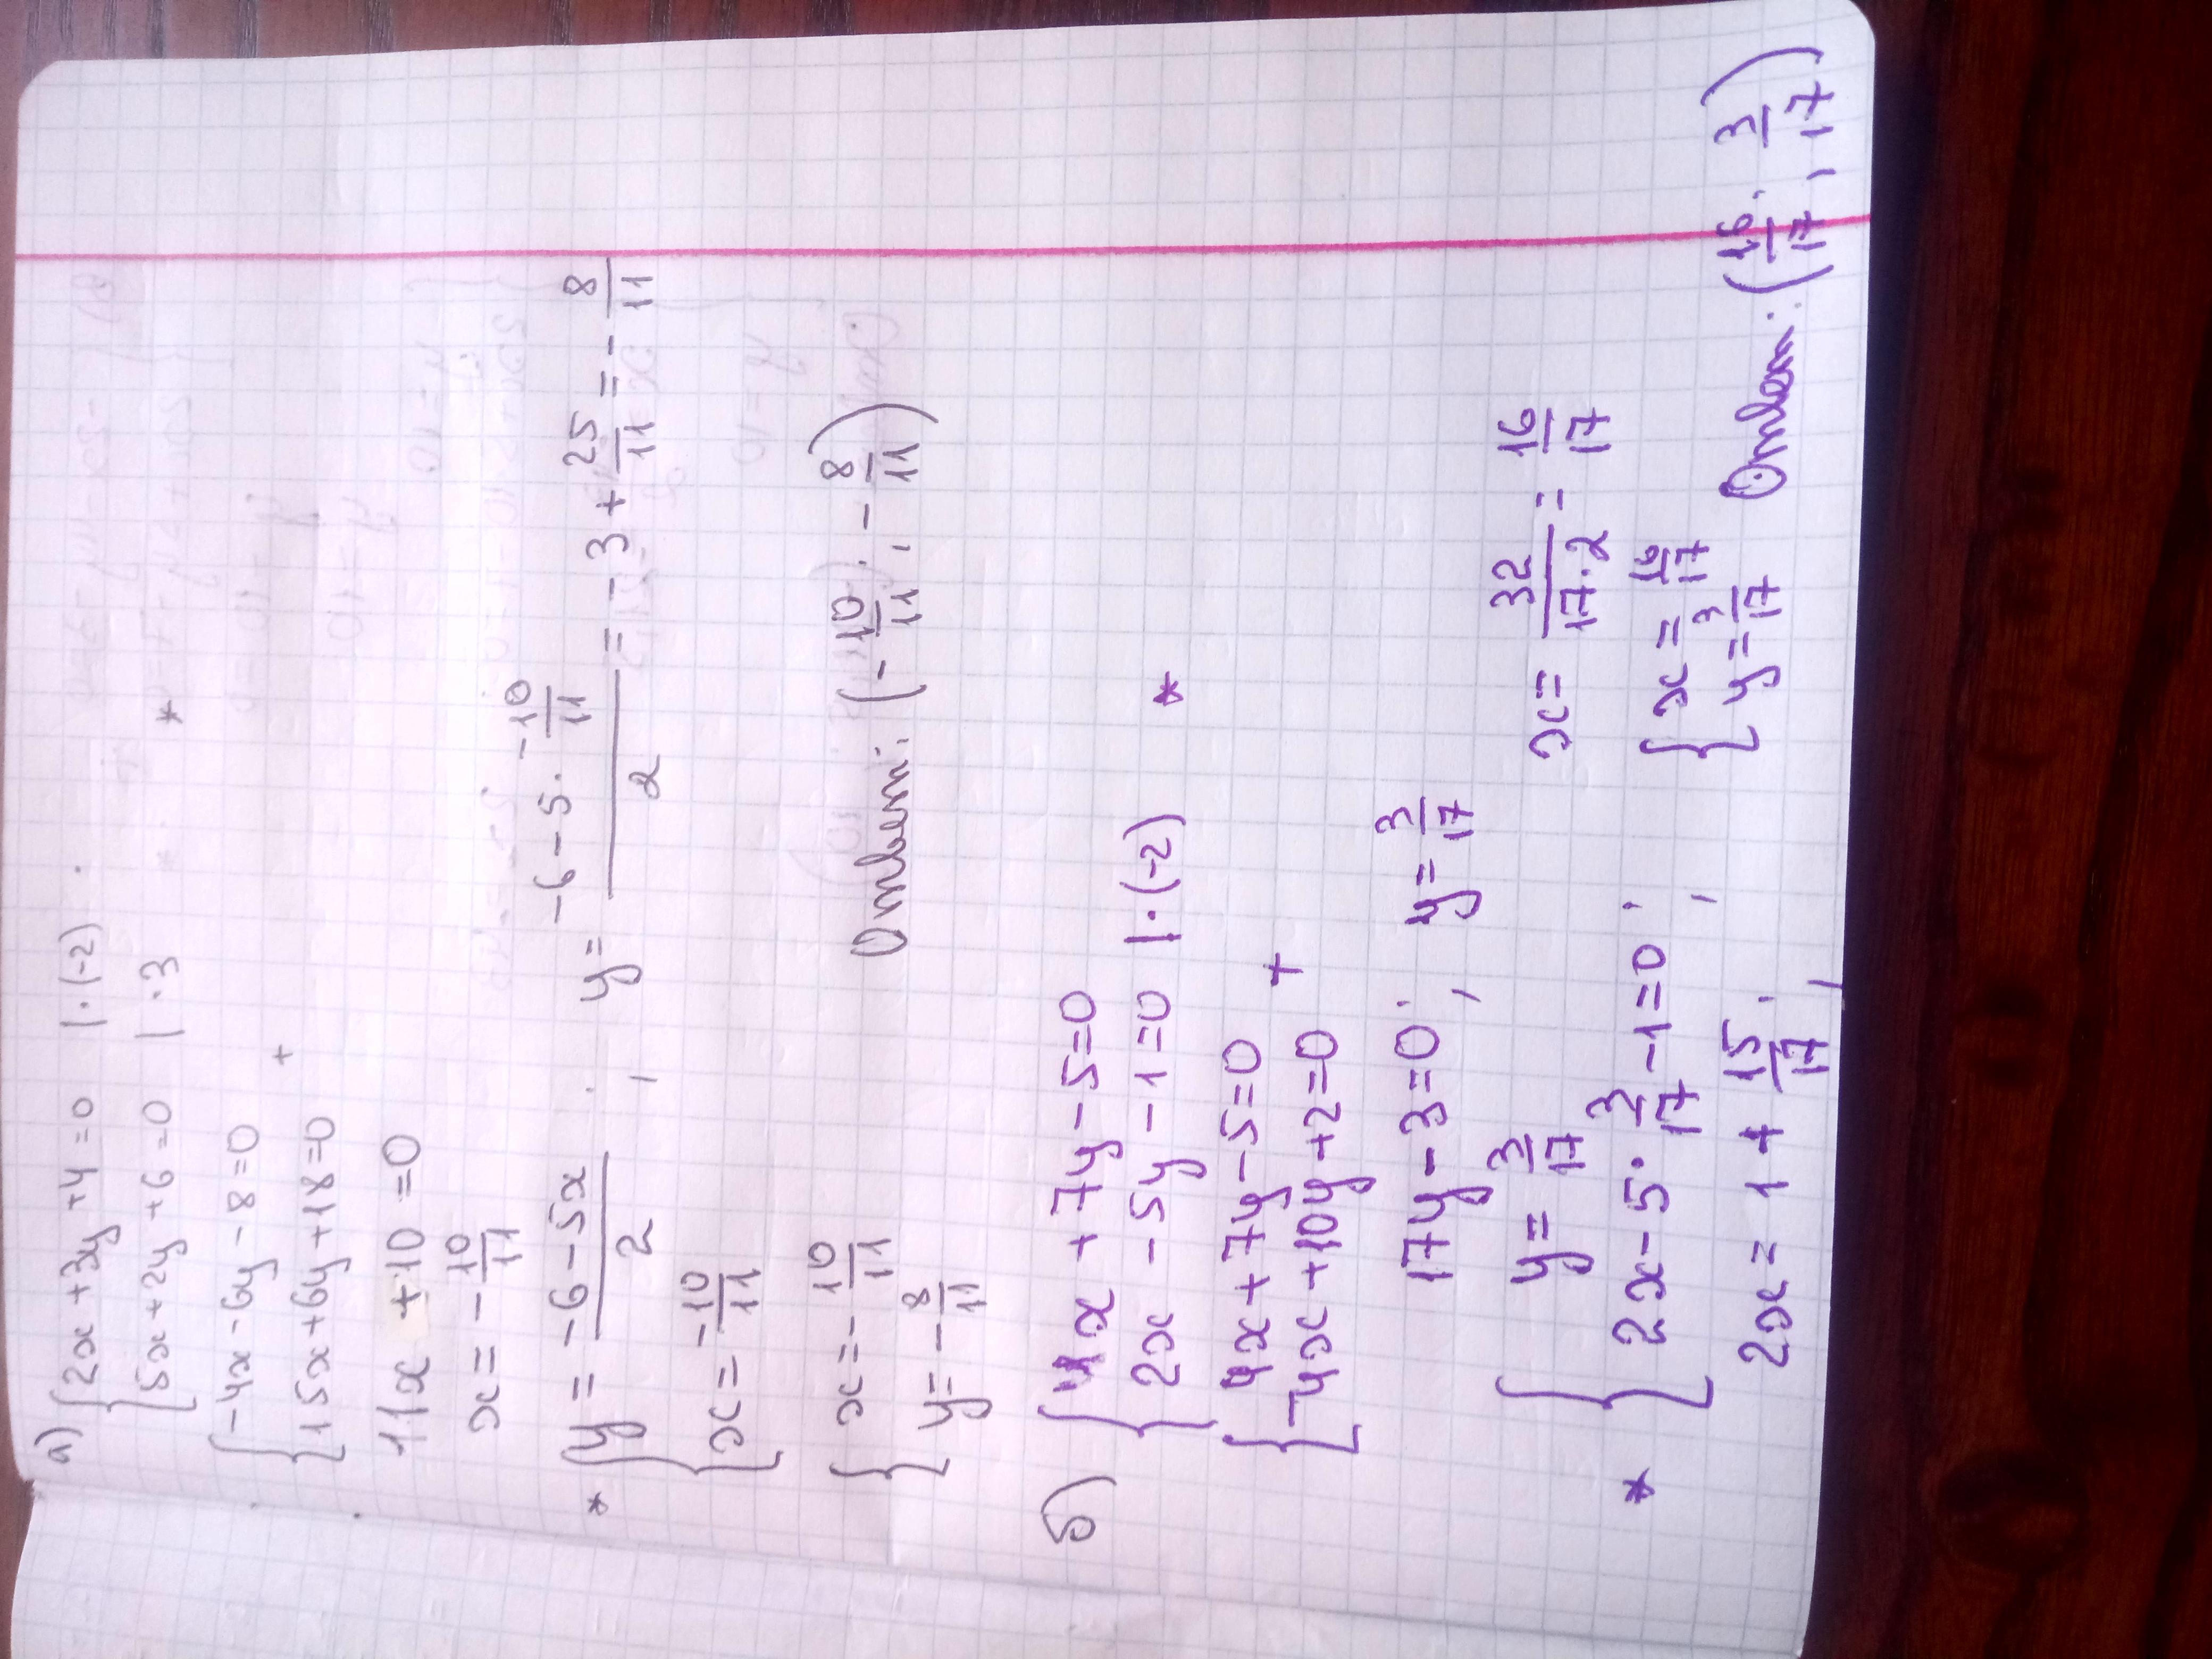 а) { 2x + 3y + 4 = 0 | · (-2)
5x + 2y + 6 = 0 | · 3 *
{ -4x - 6y - 8 = 0
+
15x + 6y + 18 = 0
11x + 10 = 0
x = - 10/11
* { y = (-6 - 5x)/2 ; y = (-6 - 5 · -10/11)/2 = -3 + 25/11 = - 8/11
x = - 10/11
{ x = - 10/11 Ответ: (- 10/11 ; - 8/11)
y = - 8/11
б) { 4x + 7y - 5 = 0
2x - 5y - 1 = 0 | · (-2) *
{ 4x + 7y - 5 = 0
+
-4x + 10y + 2 = 0
17y - 3 = 0 ; y = 3/17
* { y = 3/17
2x - 5 · 3/17 - 1 = 0 ;
2x = 1 + 15/17 ;
x = 32/(17 · 2) = 16/17
{ x = 16/17
y = 3/17 Ответ: (16/17 ; 3/17)